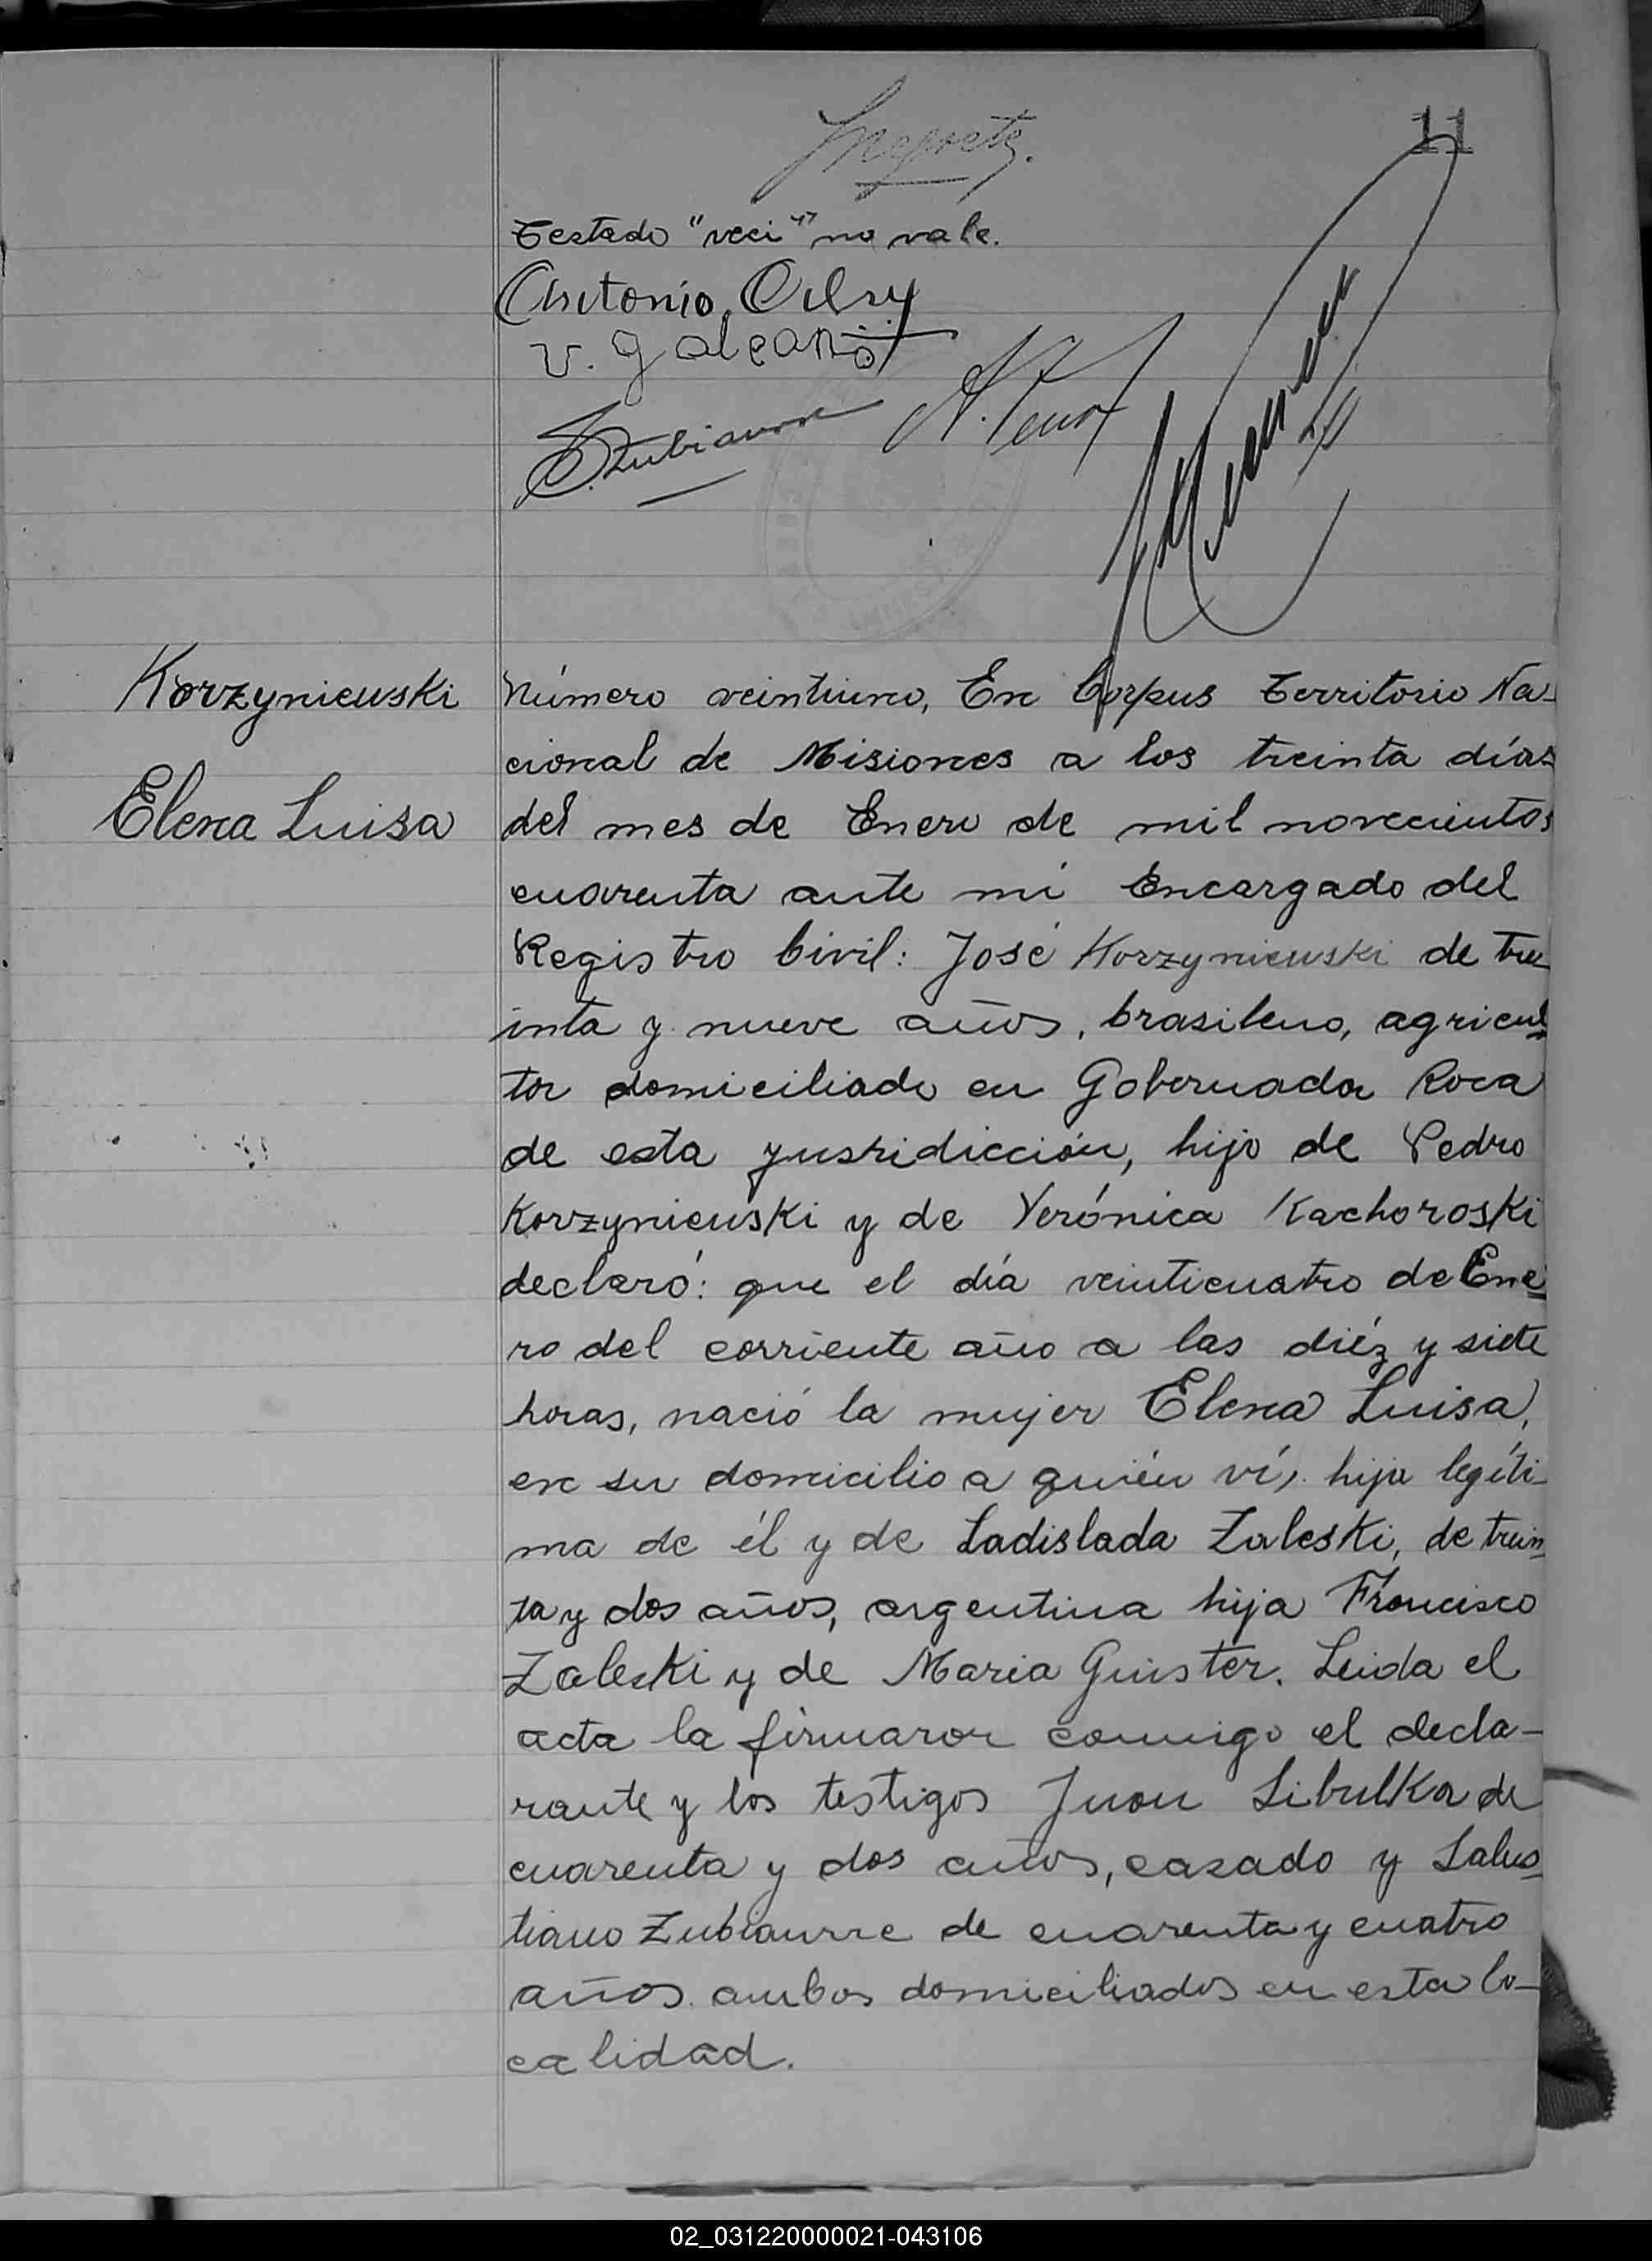 11
Testado "veci" no vale.
Antonio
V. Galeano
S. Zubiaurre
Korzyniewski
Elena Luisa
Número veintiuno, En Corpus Territorio Na-
cional de Misiones a los treinta días
del mes de Enero de mil novecientos
cuarenta ante mi Encargado del
Registro Civil: José Korzyniewski de tre-
inta y nueve años, brasileno, agricul-
tor domiciliado en Gobernador Roca
de esta jusridicción, hijo de Pedro
Korzyniewski y de Verónica Kachoroski
declaró: que el día veinticuatro de Ene-
ro del corriente año a las diéz y siete
horas, nació la mujer Elena Luisa,
en su domicilio a quién ví, hija legíti-
ma de él y de Ladislada Zaleski, de trein-
ta y dos años, argentina hija Francisco
Zaleski y de Maria Guister. Leida el
acta la firmaron conmigo el decla-
rante y los testigos Juan Sibulka de
cuarenta y dos años, casado y Salus-
tiano Zubiaurre de cuarenta y cuatro
años. ambos domiciliados en esta lo-
calidad.
02_031220000021-043106